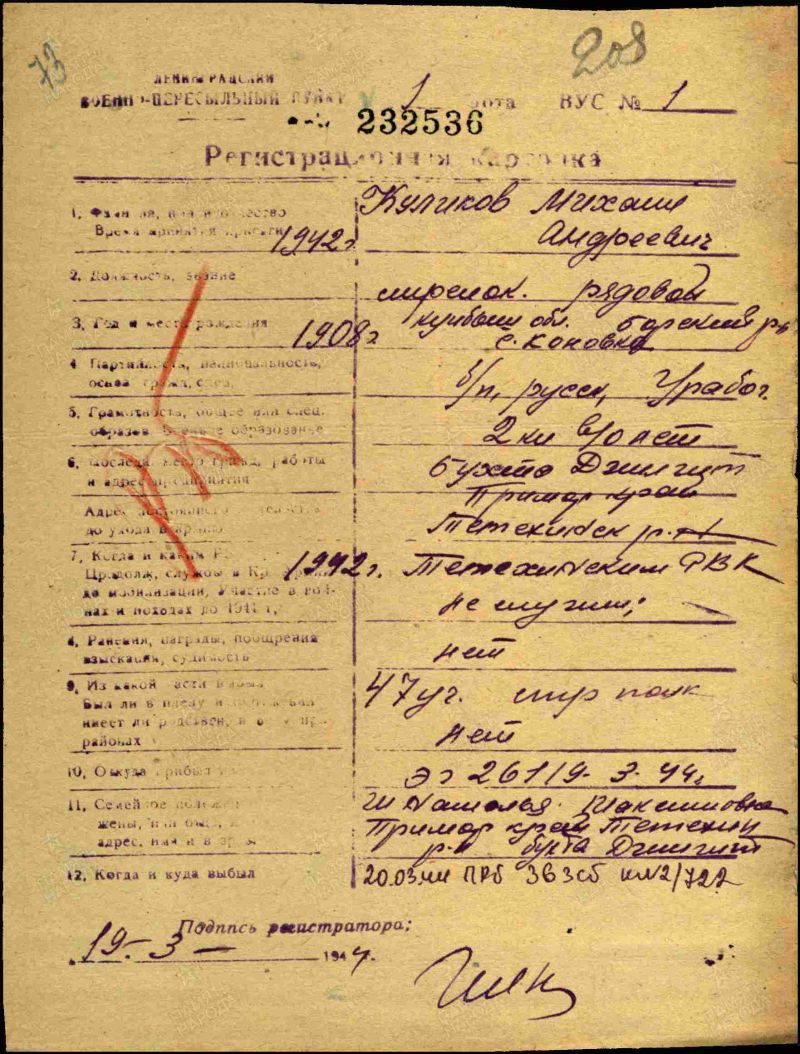 73
208
ЛЕНИНГРАДСКИЙ
ВОЕННО-ПЕРЕСЫЛЬНЫЙ ПУНКТ 1 рота ВУС № 1
232536
Регистрационная карточка
1, Фамилия, имя и отчество Куликов Михаил
Время принятия присяги 1942 г. Андреевич
2, Должность, звание стрелок. рядовой
3, Год и место рождения 1908 г. Куйбыш обл. Борский р-н
с. Коновка
4 Партийность, национальность, б/п, русск,
основ. гражд, спец.
5, Грамотность, общее или спец. 2 кл в/о нет
образов. Военное образование
6, Последн. место гражд. работы бухта Джигит
и адрес предприятия Примор край
Адрес постоянного
до ухода в армию Тетехинск р-н
7, Когда и каким 1942 г. Тетехинским РВК
Продолж, службы в
до мобилизации, Участие в вой-
нах и походах до 1941 г, не служил;
8, Ранения, награды, поощрения
взыскания, судимость нет
9, Из какой части 47 уч. стр полк
Был ли в плену и
имеет ли родствен, нет
районах
10, Откуда прибыл эг 2611 9-3-44 г
11, Семейное положен
жены, Наталья Максимовна
адрес, имя и Примор край Тетехин
р-н бухта Джигит
12, Когда и куда выбыл 20.03.44 ПРб 36 ЗСб кл2/722
Подпись регистратора;
19-3- 1944.